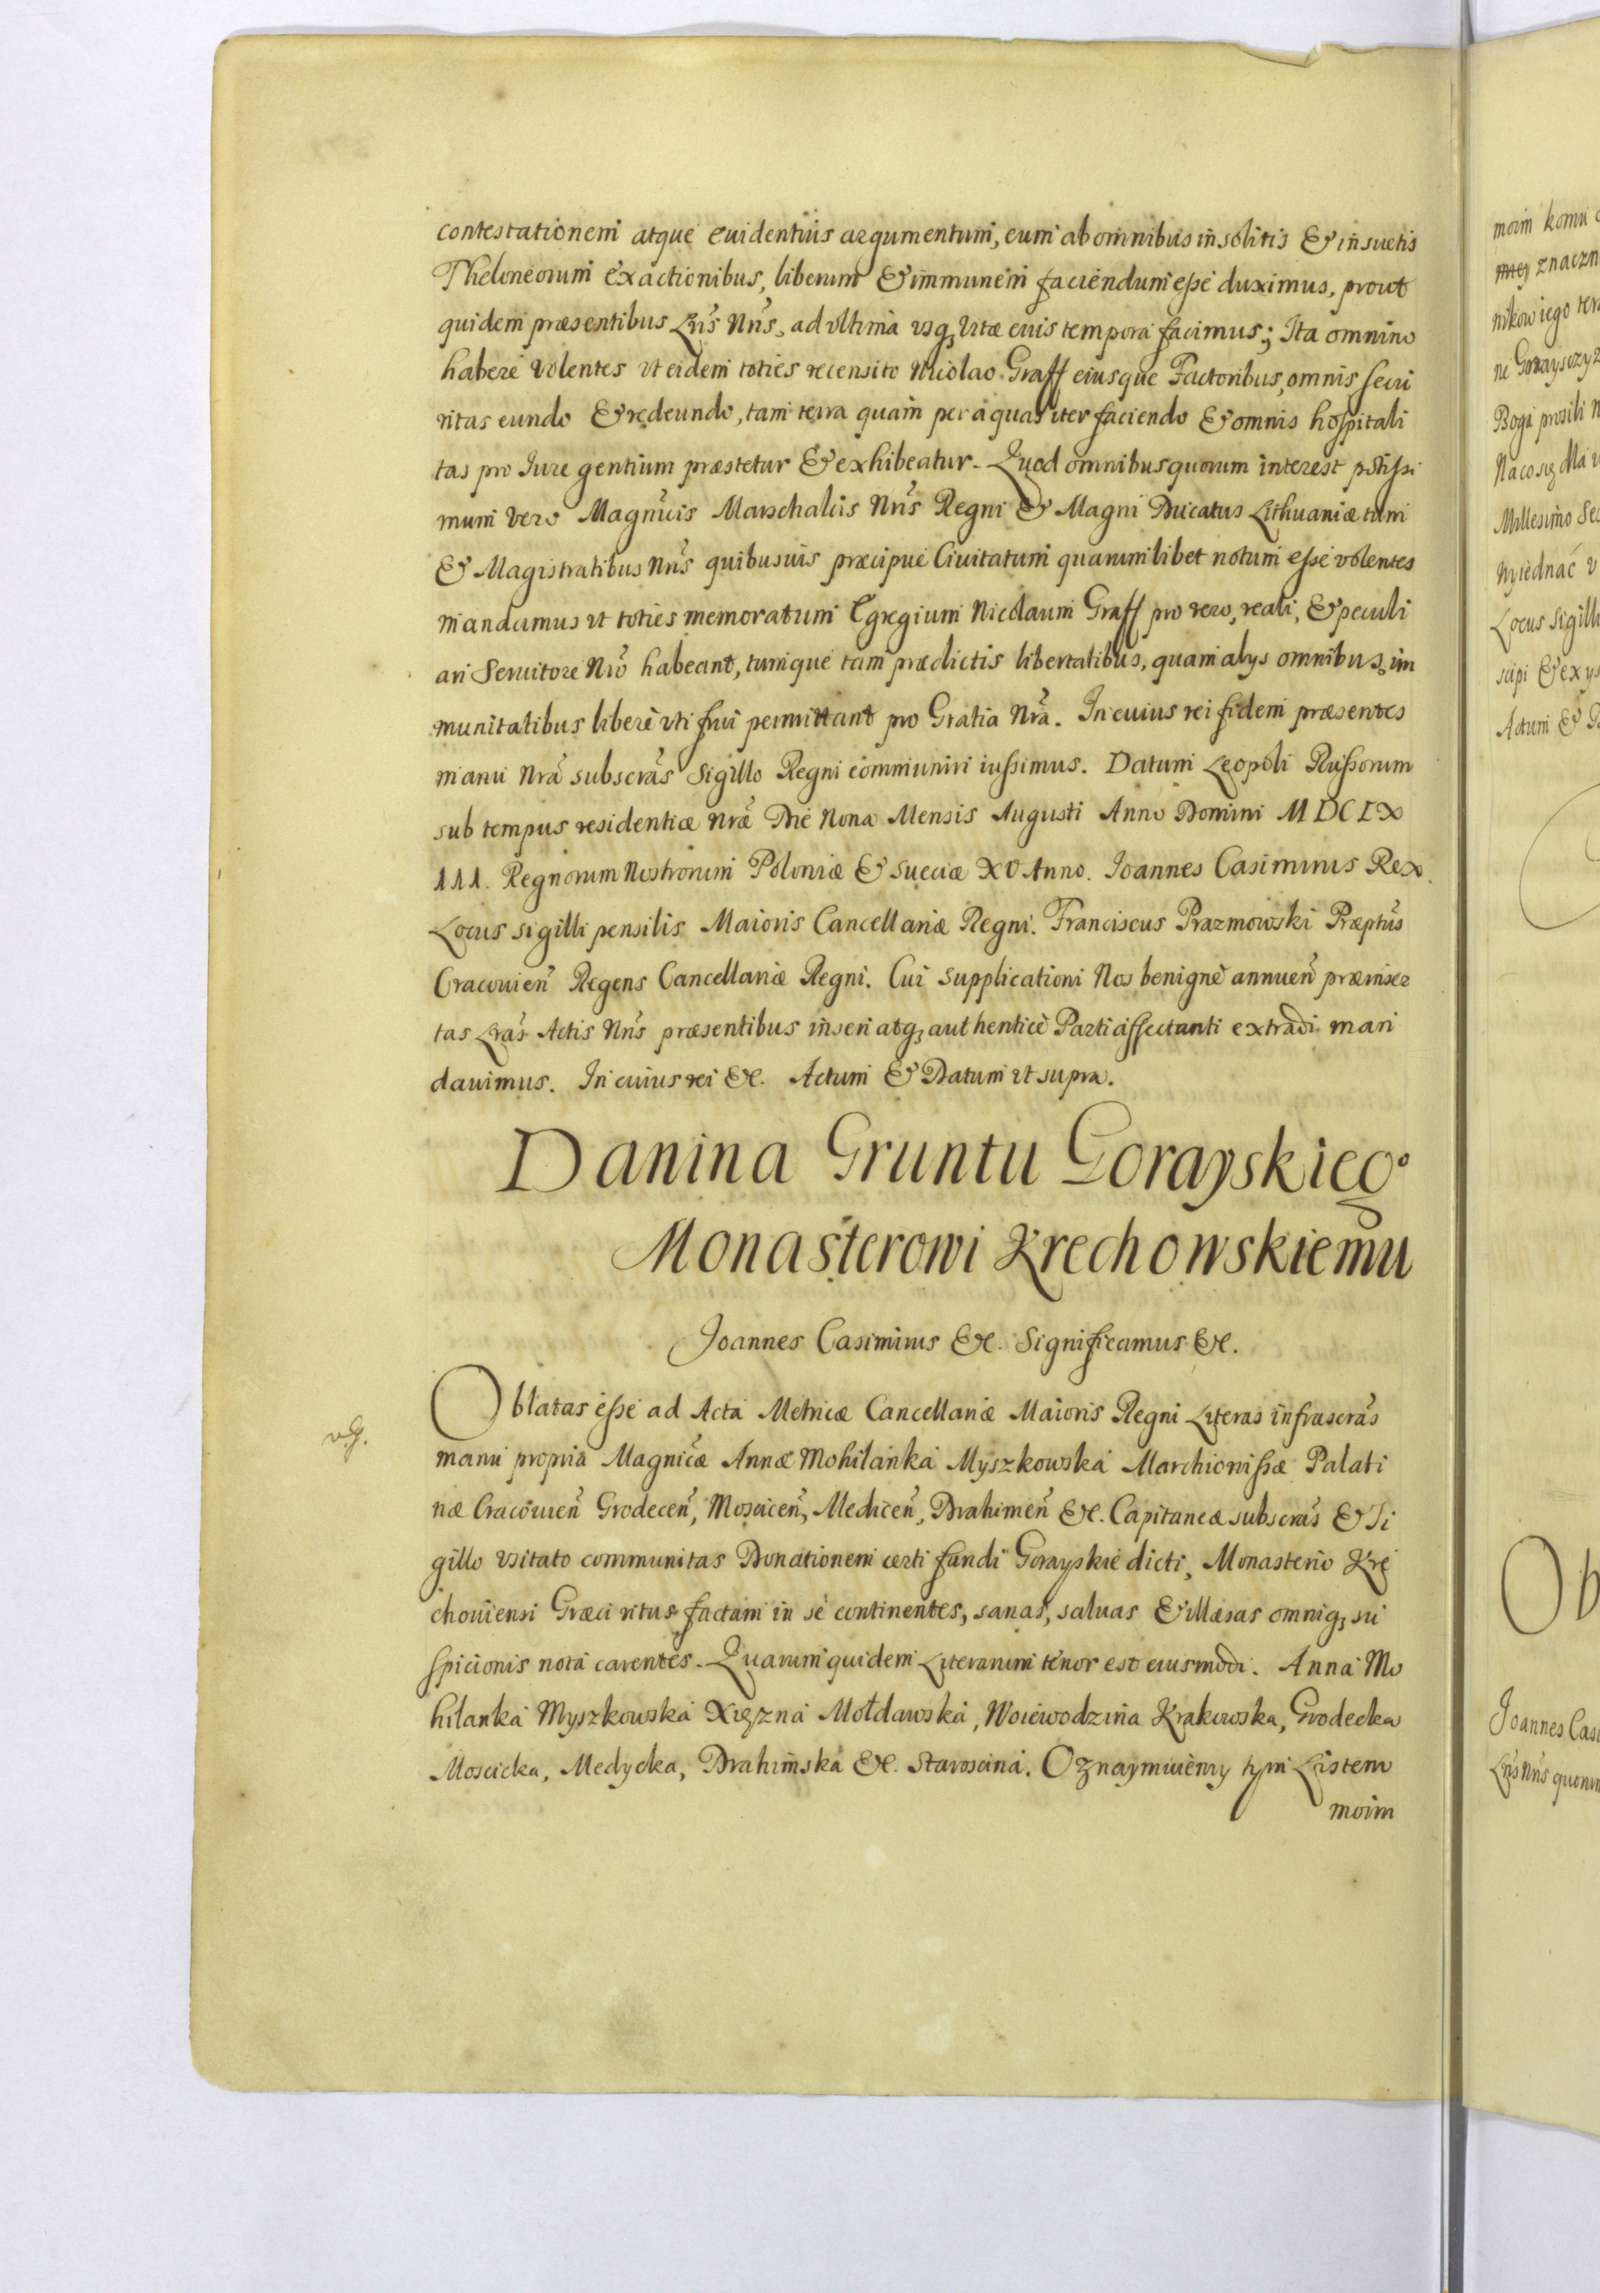 contestationem atque euidentius argumentum, eum ab omnibus insolitis & insuetis
Theloneorum exactionibus, liberum & immunem faciendum esse duximus, prout
quidem præsentibus Lris Nris, ad vltima usq, vitæ eius tempora facimus; Ita omnino
habere volentes vt eidem toties recensito Nicolao Graff eiusque Factoribus, omnis secu
ritas eundo & redeundo, tam terra quam per aquas iter faciendo & omnis hospitali
tas pro Iure gentium præstetur & exhibeatur. Quod omnibus quorum interest potissi
mum vero Magnicis Marschalcis Nris Regni & Magni Ducatus Lithuaniæ tum
& Magistratibus Nris quibusuis præcipue Ciuitatum quarumlibet notum esse volentes
mandamus vt toties memoratum Egregium Nicolaum Graff pro vero, reali, & peculi
ari Seruitore Nro habeant, tumque tam prædictis libertatibus, quam alys omnibus, im
munitatibus libere vti frui permittant pro Gratia Nra. In cuius rei fidem præsentes
manu Nra subscras Sigillo Regni communiri iussimus. Datum Leopoli Russorum
sub tempus residentiæ Nræ Die Nona Mensis Augusti Anno Domini MDCLX
III. Regnorum Nostrorum Poloniæ & Sueciæ XV Anno. Ioannes Casimirus Rex.
Locus sigilli pensilis Maioris Cancellariæ Regni. Franciscus Prazmowski Præptus
Cracouien Regens Cancellariæ Regni. Cui supplicationi Nos benigne annuen præinser
tas Lras Actis Nris præsentibus inseri atq, authentice Parti affectanti extradi man
dauimus. In cuius rei &c. Actum & Datum vt supra.
Danina Gruntu Gorayskiego
Monasterowi Krechowskiemu
Joannes Casimirus &c. Significamus &c.
Oblatas esse ad Acta Metricæ Cancellariæ Maioris Regni Literas infrascras
manu propria Magnicæ Annæ Mohilanka Myszkowska Marchionissæ Palati
næ Cracouien Grodecen, Moscicen, Medicen, Drahimen &c. Capitaneæ subscras & Si
gillo vsitato communitas Donationem certi fundi Gorayskie dicti, Monasterio Kre
chouiensi Græci ritus factam in se continentes, sanas, saluas & illæsas omniq, su
spicionis nota carentes. Quarum quidem Literarum tenor est eiusmodi. Anna Mo
hilanka Myszkowska Xiężna Mołdawska, Woiewodzina Krakowska, Grodecka
Moscicka, Medycka, Drahimska &c. Staroscina. Oznaymuiemy tym Listem
moim
moim komu
znaczn
nikow iego
ni Gorayszyz
Boga prosili
Na co się dla
Millesimo Sec
Locus Sigilli
scipi & exys
Actum &
Ob
Joannes Casi
Lris Nris quorum